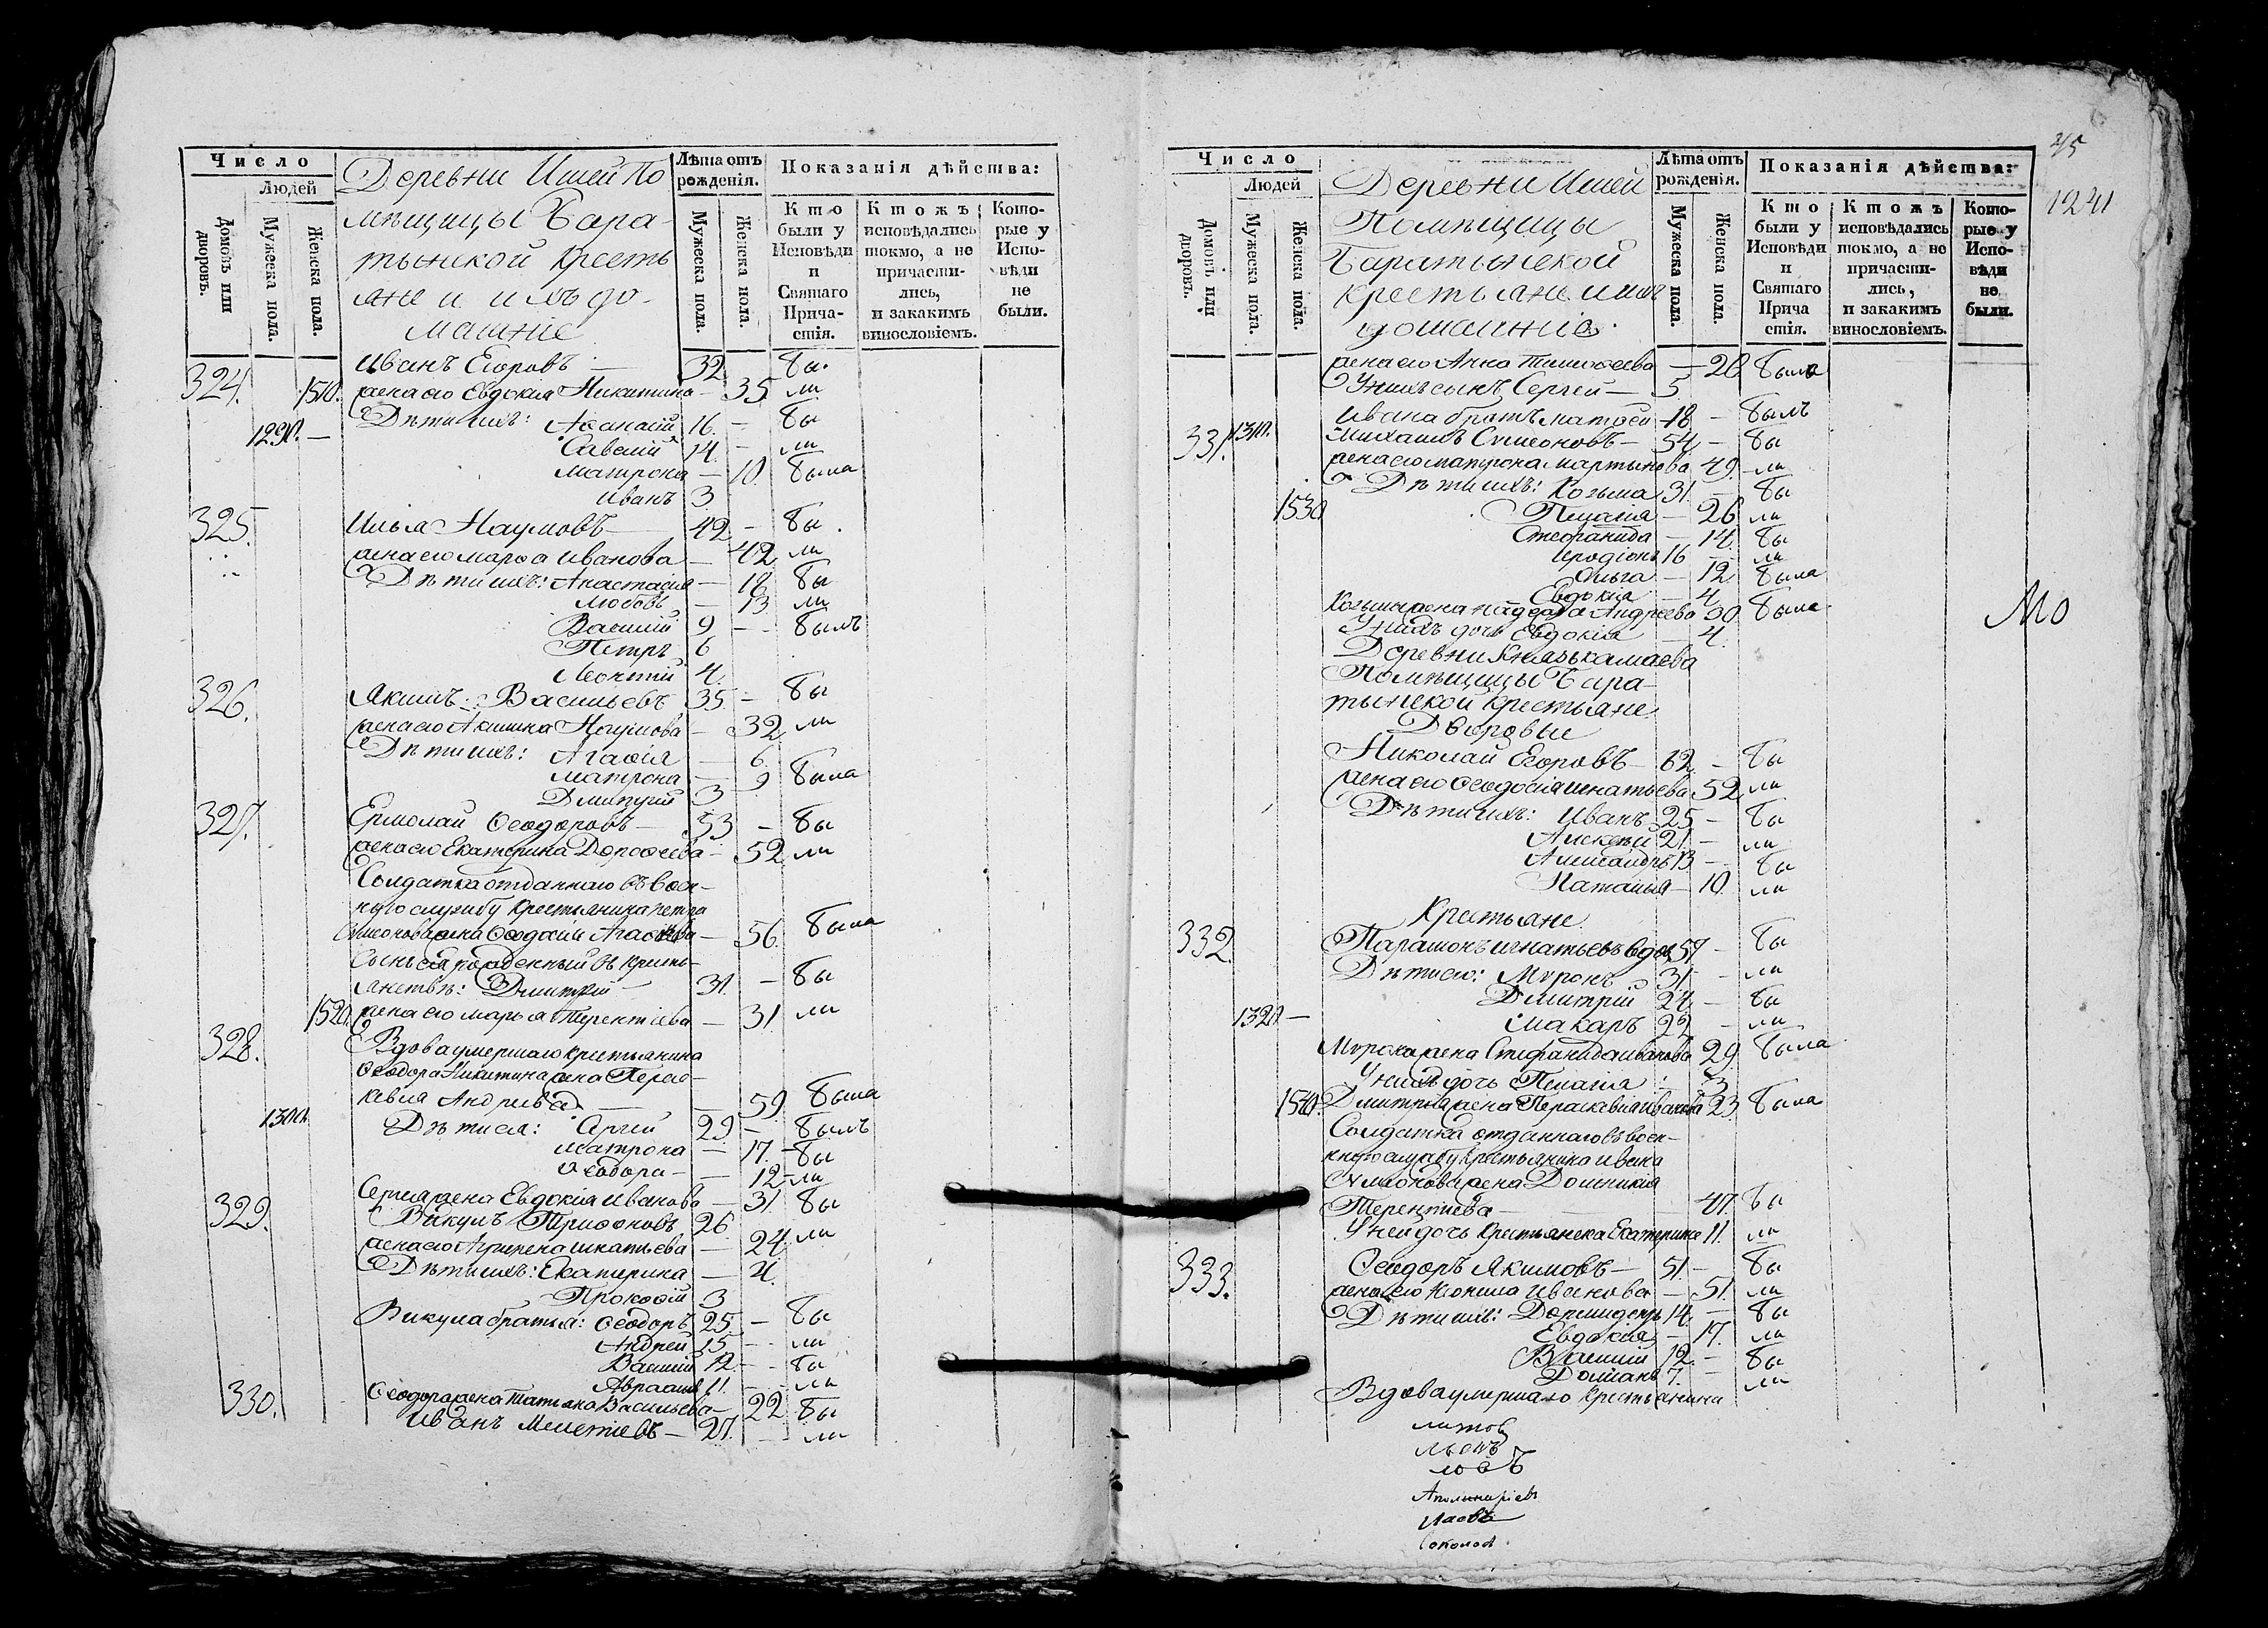 Число
Людей
Домовъ или дворовъ.
Мужеска пола.
Женска пола.
Деревни Ишей По
мѣщицы Бара-
тынской кресть
яне и ихъ до-
машніе
Лѣта отъ рожденія.
Мужеска пола.
Женска пола.
Показанія дѣйства:
Кто были у Исповѣди и Святаго Прича-стія.
Ктожъ исповѣдались токмо, а не причасти-лись, и закакимъ винословіемъ.
Кото-рые у Испо-вѣди не были.
324. Иванъ Егоровъ 32 бы
1510. жена его Евдокія Никитина – 35 ли
1290. – Дѣти ихъ: Аѳанасій 16. – бы
Савелій 14 – ли
Матрона – 10 была
Иванъ 3
325. Илья Наумовъ 42 – бы
жена его Марѳа Иванова – 42 ли
Дѣти ихъ: Анастасія – 18 бы
Любовь – 13 ли
Василій 9 – былъ
Петръ 6
Леонтій 4.
326. Якимъ Васильевъ 35 – бы
жена его Акилина Наумова – 32 ли
Дѣти ихъ: Агаѳія – 6.
Матрона – 9 была
Дмитрій 3
327. Ермолай Ѳеодоровъ – 53 – бы
жена его Екатерина Дороѳеева – 52 ли
Солдатка отданнаго въ воен-
ную службу крестьянина Петра
Симеонова жена Ѳеодосія – 56. была
Сынъ ея рожденный въ кресть-
янствѣ: Дмитрій 31. – бы
1520. жена его Марья Терентіева – 31 ли
328. Вдова умершаго крестьянина
Ѳеодора Никитина жена Перас-
кевіа Андреева – 59 была
1300. Дѣти ея: Сергій 29 – былъ
Матрона – 17. – бы
Ѳеодора – – 12 – ли
Сергія жена Евдокія Иванова – 31 бы
329. Викулъ Трифоновъ 26
жена его Агрипена Игнатьева – 24 ли
Дѣти ихъ: Екатерина – 4.
Прокофій 3
Викула братья: Ѳеодоръ 25 – бы
Андрей 15 – ли
Василій 12. – бы
Авраамъ 11. – ли
Ѳеодора жена Татьяна Васильева – 22 бы
330. Иванъ Мелетіевъ – 27. – ли
45
1241
Число
Людей
Домовъ или дворовъ.
Мужеска пола.
Женска пола.
Деревни Ишей
Помѣщицы
Баратынской
крестьяне и ихъ
домашніе.
Лѣта отъ рожденія.
Мужеска пола.
Женска пола.
Показанія дѣйства:
Кто были у Исповѣди и Святаго Прича стія.
Ктожъ исповѣдались токмо, а не причасти-лись, и закакимъ винословіемъ.
Кото-рые у Испо-вѣди не были.
жена его Анна Тимоѳеева – 28 была
У нихъ сынъ Сергей – 5
1310. Ивана братъ Матѳей 18 – былъ
331. Михаилъ Симеоновъ – 54 – бы
жена его Матрона Мартынова 49. – ли
Дѣти ихъ: Козьма 31. – бы
1530 Пелагія – 26 ли
Стефанида – 14. бы
Иродіонъ 16 – ли
Ольга – 12 была
Евдокія – 4
Козьмы жена Надежда Андреева 30 была
У нихъ дочь Евдокія – 4.
Деревни Князькамаева
Помѣщицы Бара-
тынской крестьяне
Дворовые
Николай Егоровъ 62. – бы
жена его Ѳеодосія Игнатьева 52 ли
Дѣти ихъ: Иванъ 25 – бы
Алексѣй 21. – ли
Александръ 13 – бы
Наталья – 10. ли
Крестьяне
332. Парамонъ Игнатьевъ вдов. 57 – бы
Дѣти его: Миронъ 31 – ли
Дмитрій 27 – бы
1320 – Макаръ 22 – ли
Мирона жена Стефанида Иванова 29. была
У нихъ дочь Пелагія – 3
1540 Дмитрія жена Параскевіа Иванова 23 была
Солдатка отданнаго въ воен-
ную службу крестьянина Ивана
Симеонова жена Домникія
Терентіева – 47. бы
У ней дочь крестьянска Екатерина 11. ли
333. Ѳеодоръ Якимовъ – 51. – бы
жена его Ксенія Иванова – 51. ли
Дѣти ихъ: 14. – бы
Евдокія – 17. ли
Василій 12. – бы
7. – ли
Вдова умершаго крестьянина
МО